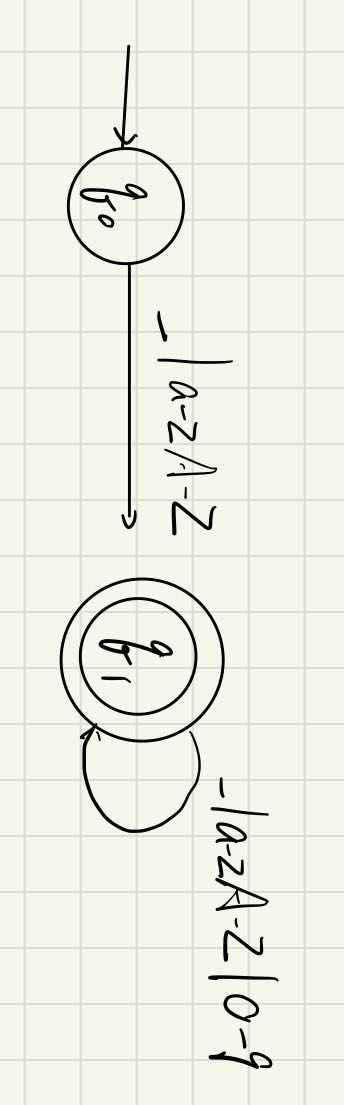 q0
_|a-zA-Z
q1
_|a-zA-Z|0-9